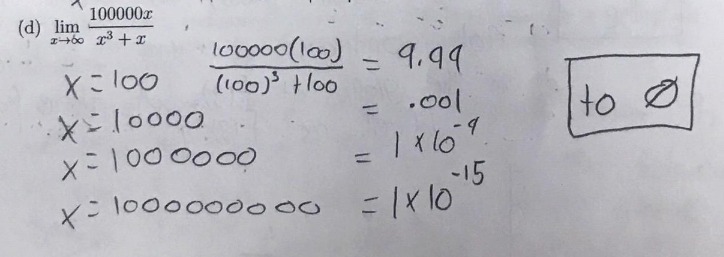 (d) lim x→∞ 100000x / x³ + x
x = 100 100000(100) / (100)³ + 100 = 9.99
x = 10000 = .001
x = 1000000 = 1 x 10⁻⁹
x = 1000000000 = 1 x 10⁻¹⁵
to Ø